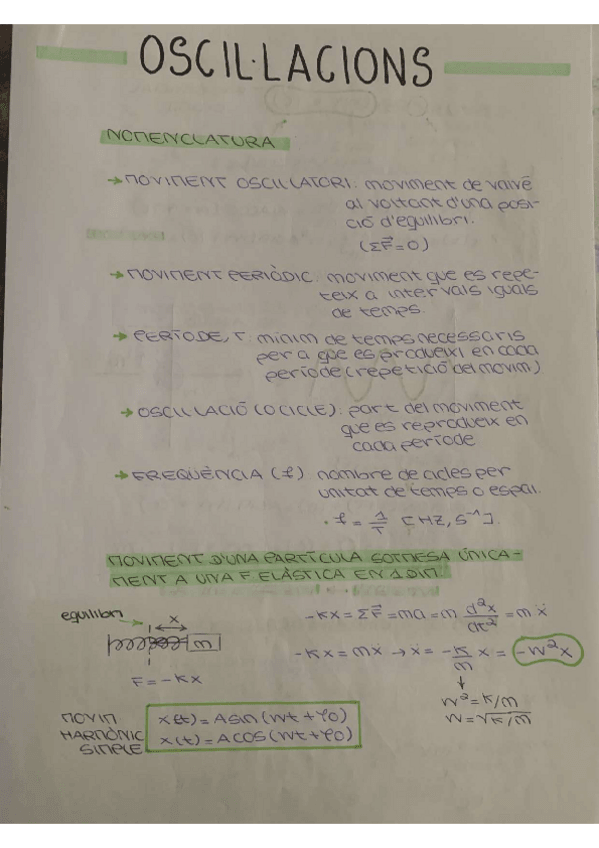 OSCIL·LACIONS
NOMENCLATURA
→ MOVIMENT OSCIL·LATORI: moviment de vaivé
al voltant d'una posi-
ció d'equilibri.
(ΣF⃗=0)
→ MOVIMENT PERIÒDIC: moviment que es repe-
teix a intervals iguals
de temps.
→ PERÍODE, T: mínim de temps necessaris
per a que es produeixi en cada
període (repetició del movim)
→ OSCIL·LACIÓ (O CICLE): part del moviment
que es reprodueix en
cada període
→ FREQÜÈNCIA (f) nombre de cicles per
unitat de temps o espai.
· f = 1/T [HZ, S⁻¹].
MOVIMENT D'UNA PARTÍCULA SOTMESA ÚNICA-
MENT A UNA F ELÀSTICA EN 1 DIM.
equilibri
x
m
F = -Kx
-Kx = ΣF⃗ = ma = m d²x/dt² = m ẍ
-Kx = mẍ → ẍ = -K/m x = -W²x
W² = K/m
W = √K/m
MOVIM
HARMÒNIC
SIMPLE
x(t) = A sin (Wt + φ0)
x(t) = A cos (Wt + φ0)